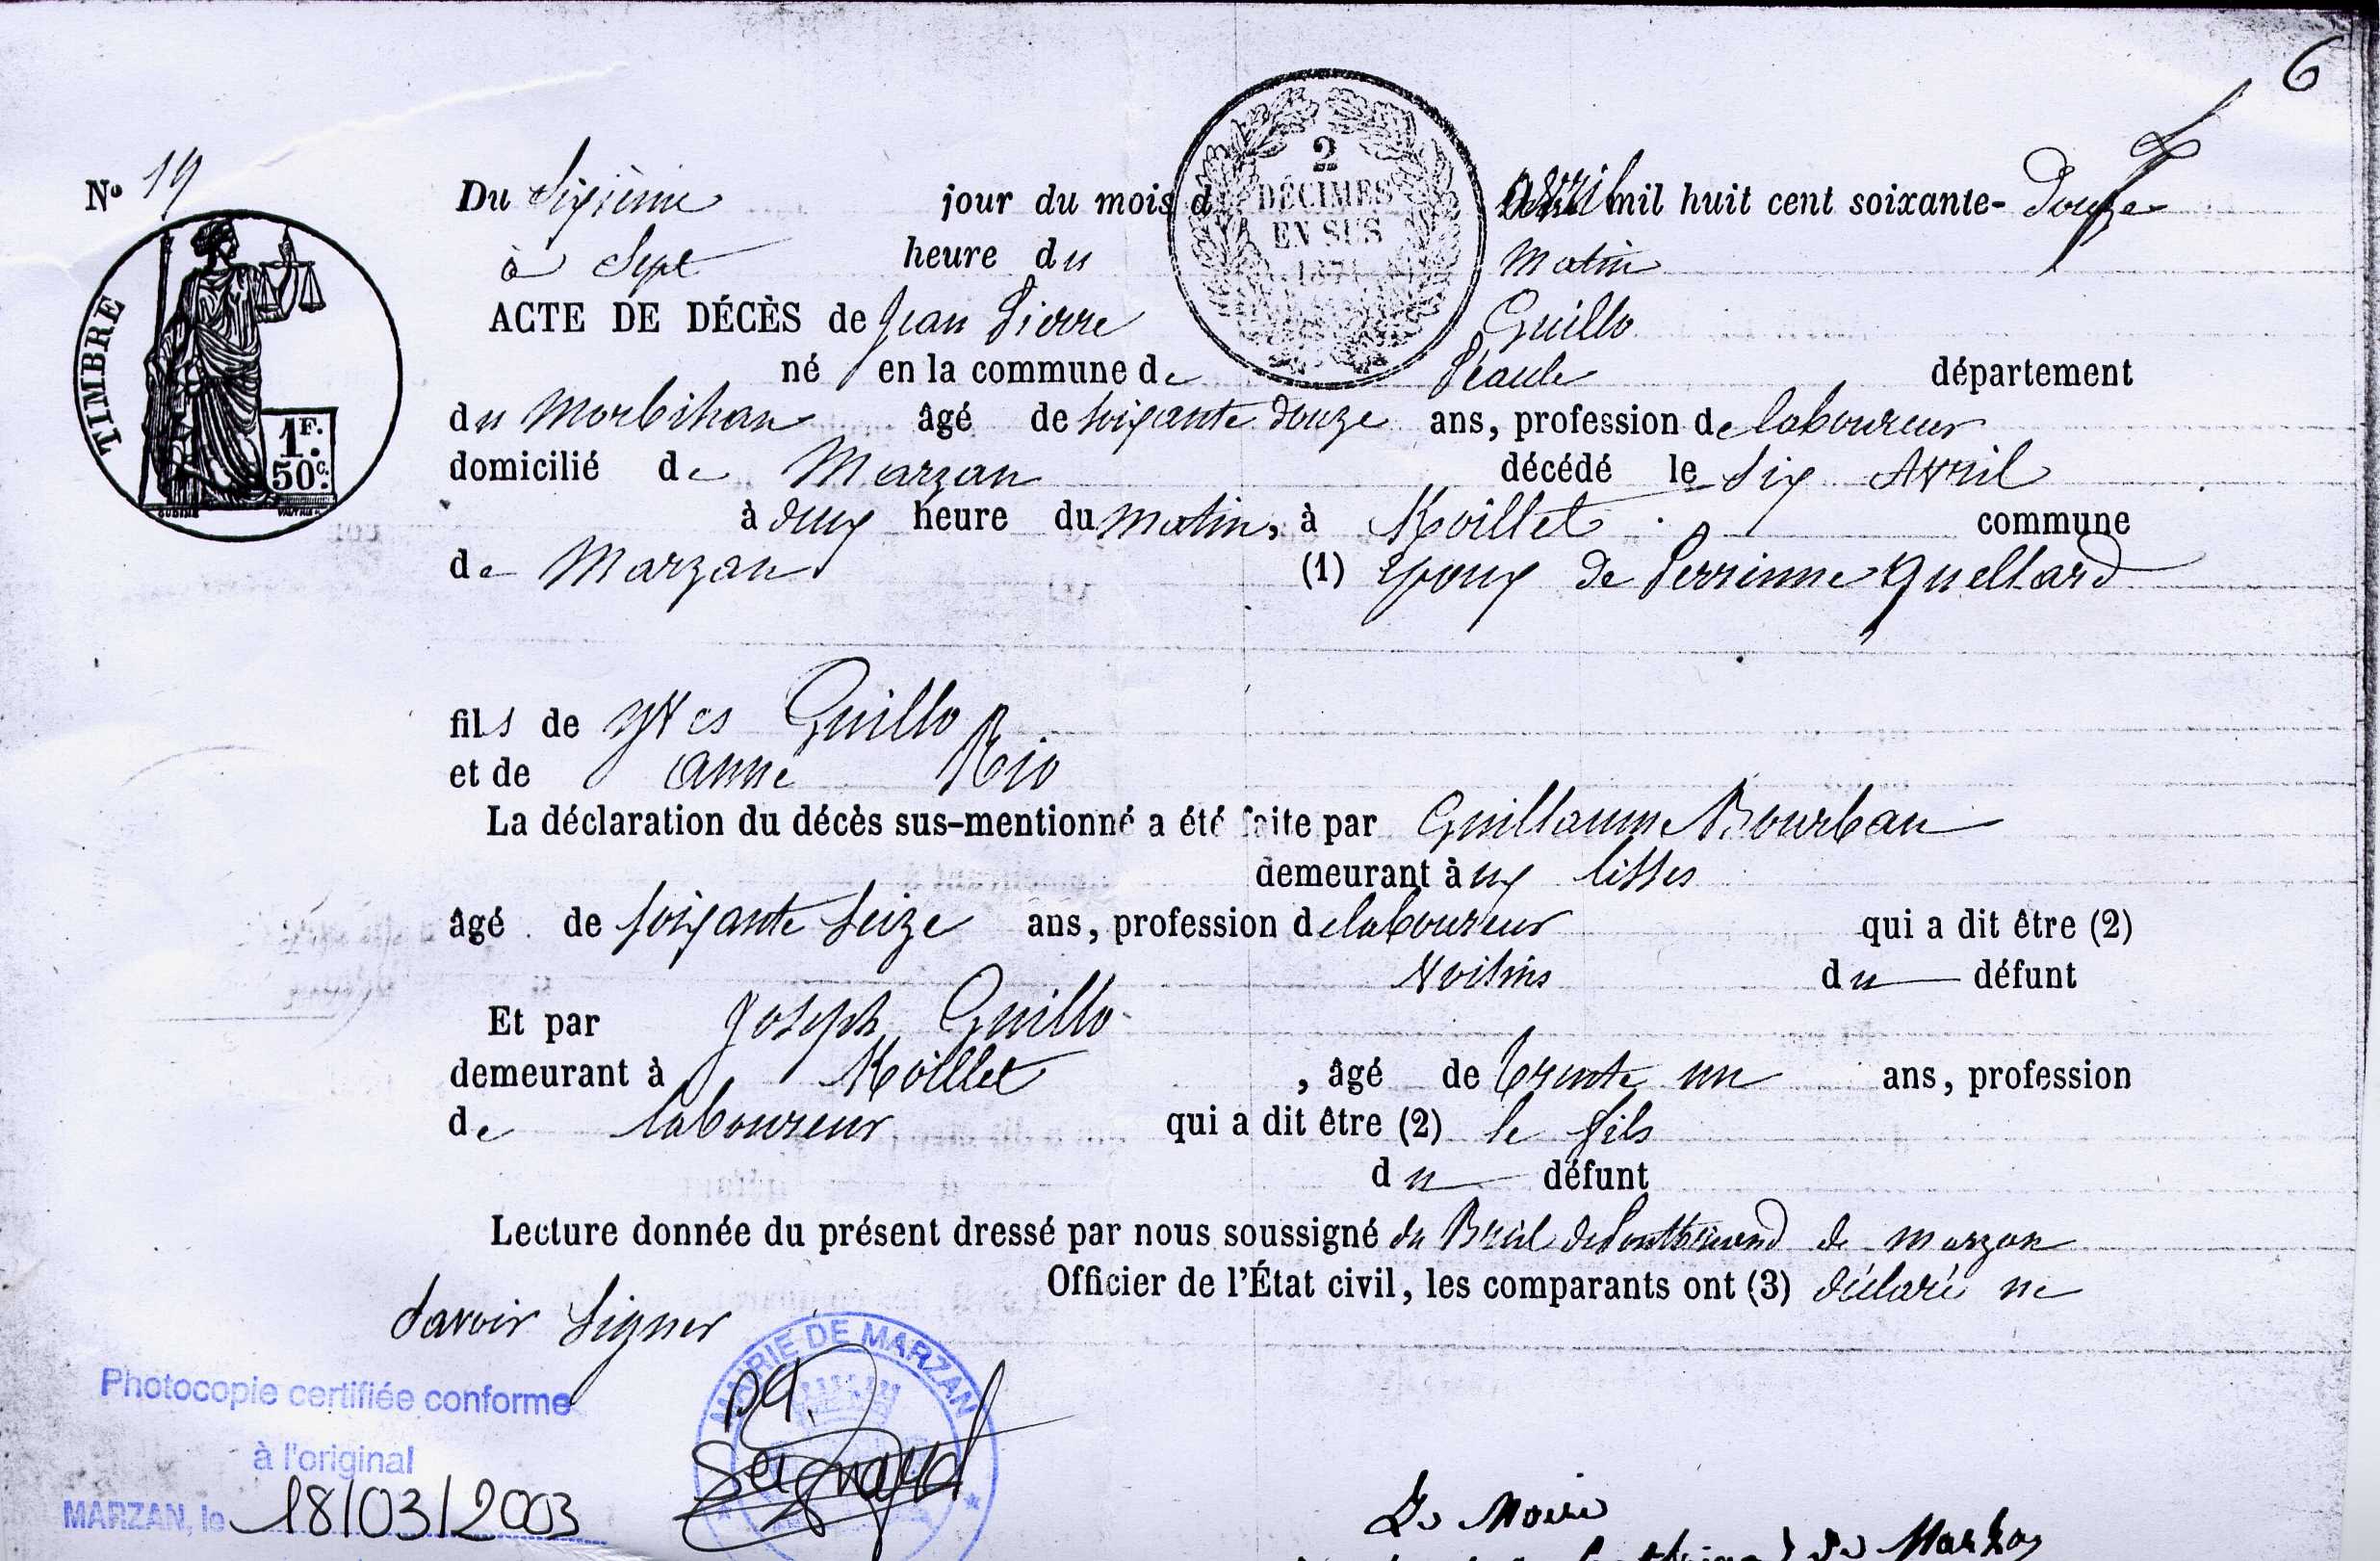 6
N° 19
Du Sixième jour du mois d avril mil huit cent soixante- Douze
2
DÉCIMES
EN SUS
1871
à Sept heure du Matin
TIMBRE
1F.
50c.
ACTE DE DÉCÈS de Jean Pierre Guillo
né en la commune de Péaule département
du Morbihan âgé de soixante douze ans, profession de laboureur
domicilié de Marzan décédé le Six Avril
à deux heure du matin, à Koillet commune
de Marzan (1) Epoux de Perrinne Quellard
fils de Yves Guillo
et de Anne Rio
La déclaration du décès sus-mentionné a été faite par Guillaume Bourban
demeurant à ux lisses
âgé de soixante Seize ans, profession de laboureur qui a dit être (2)
Voisins du défunt
Et par Joseph Guillo
demeurant à Koillet , âgé de trente un ans, profession
de laboureur qui a dit être (2) le fils
du défunt
Lecture donnée du présent dressé par nous soussigné du Breil de Pontbriand de Marzan
Officier de l'État civil, les comparants ont (3) déclaré ne
Savoir Signer
MAIRIE DE MARZAN
Photocopie certifiée conforme
à l'original
MARZAN, le 18/03/2003
Le Maire
de Marzan